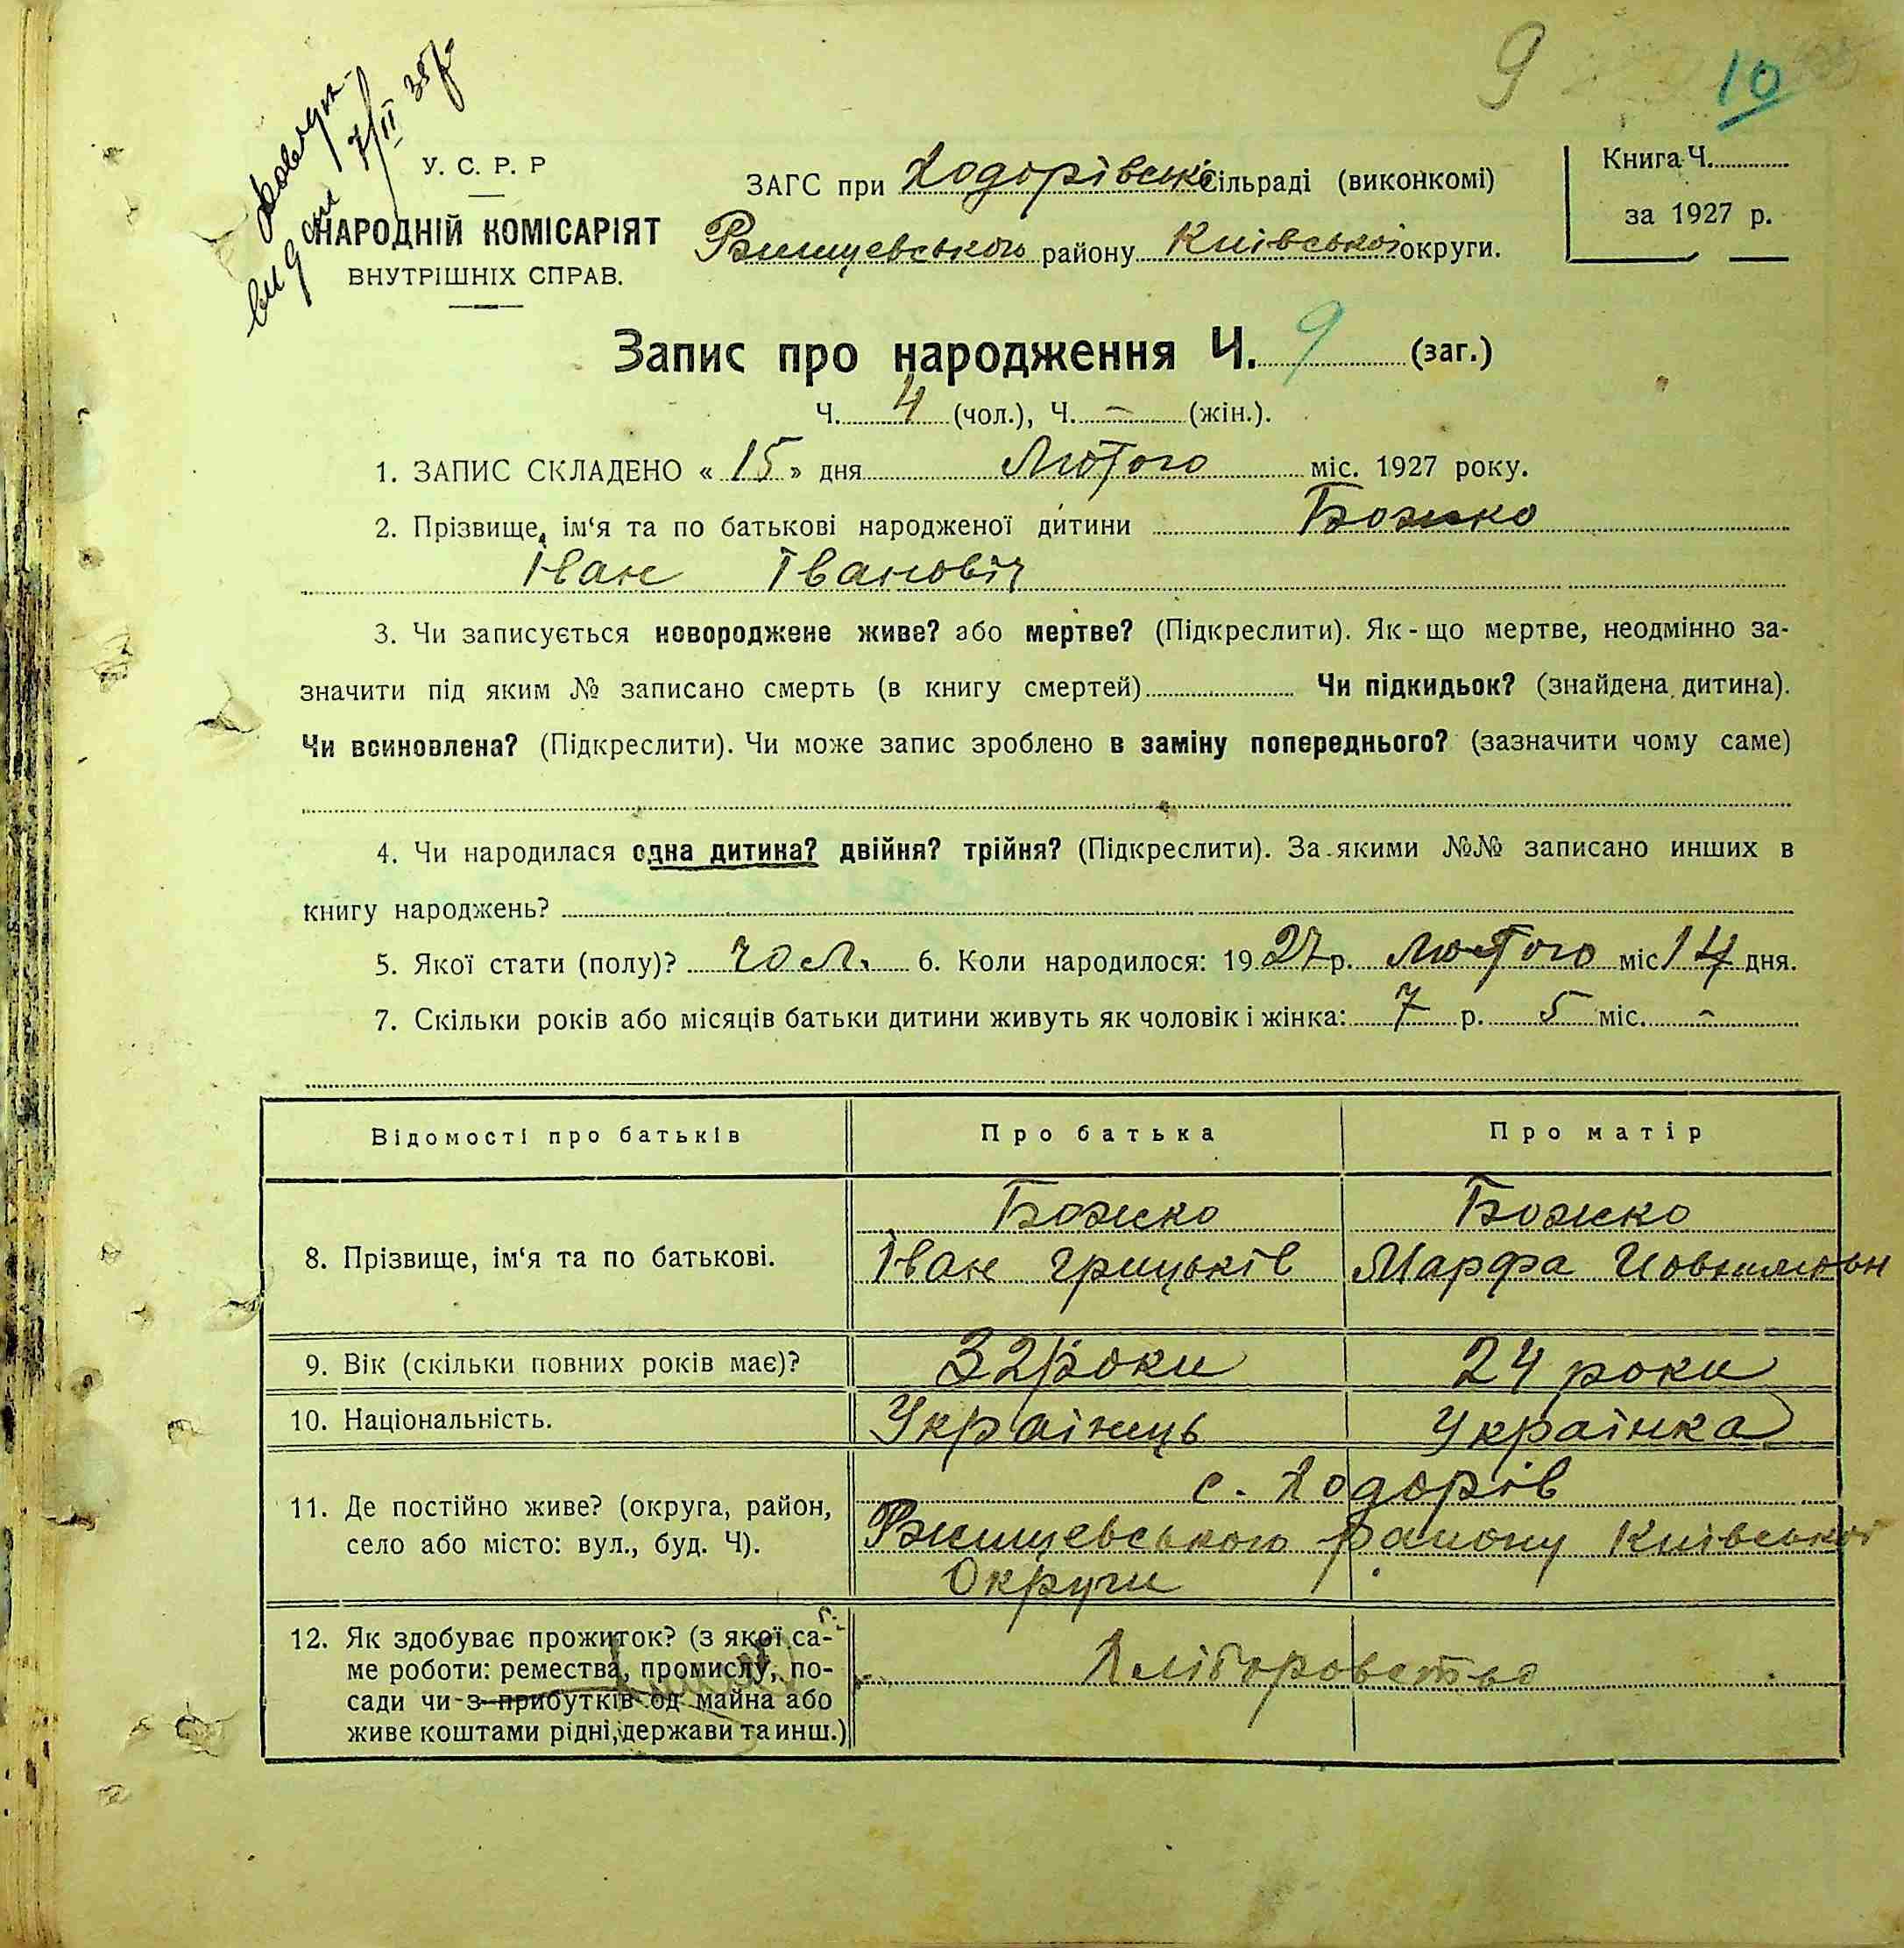 9 10
видане 7/II 38р
У. С. Р. Р
НАРОДНІЙ КОМІСАРІЯТ
ВНУТРІШНІХ СПРАВ.
ЗАГС при Ходорівські сільраді (виконкомі)
Ржищевського району Київської округи.
Книга Ч.
за 1927 р.
Запис про народження Ч. 9 (заг.)
Ч. 4 (чол.), Ч. – (жін.).
1. ЗАПИС СКЛАДЕНО « 15 » дня Лютого міс. 1927 року.
2. Прізвище, ім‘я та по батькові народженої дитини Божко
Іван Іванович
3. Чи записується новороджене живе? або мертве? (Підкреслити). Як-що мертве, неодмінно за-
значити під яким № записано смерть (в книгу смертей) Чи підкидьок? (знайдена дитина).
Чи всиновлена? (Підкреслити). Чи може запис зроблено в заміну попереднього? (зазначити чому саме)
4. Чи народилася одна дитина? двійня? трійня? (Підкреслити). За якими №№ записано инших в
книгу народжень?
5. Якої стати (полу)? чол. 6. Коли народилося: 1927 р. Лютого міс 14 дня.
7. Скільки років або місяців батьки дитини живуть як чоловік і жінка: 7 р. 5 міс. –
Відомості про батьків Про батька Про матір
Божко Божко
8. Прізвище, ім‘я та по батькові. Іван Грицьків Марфа
9. Вік (скільки повних років має)? 32 роки 24 роки
10. Національність. Українець Українка
с. Ходорів
11. Де постійно живе? (округа, район,
село або місто: вул., буд. Ч). Ржищевського району Київської
Округи
12. Як здобуває прожиток? (з якої са-
ме роботи: ремества, промислу, по-
сади чи з прибутків од майна або
живе коштами рідні, держави та инш.)
Хліборобство